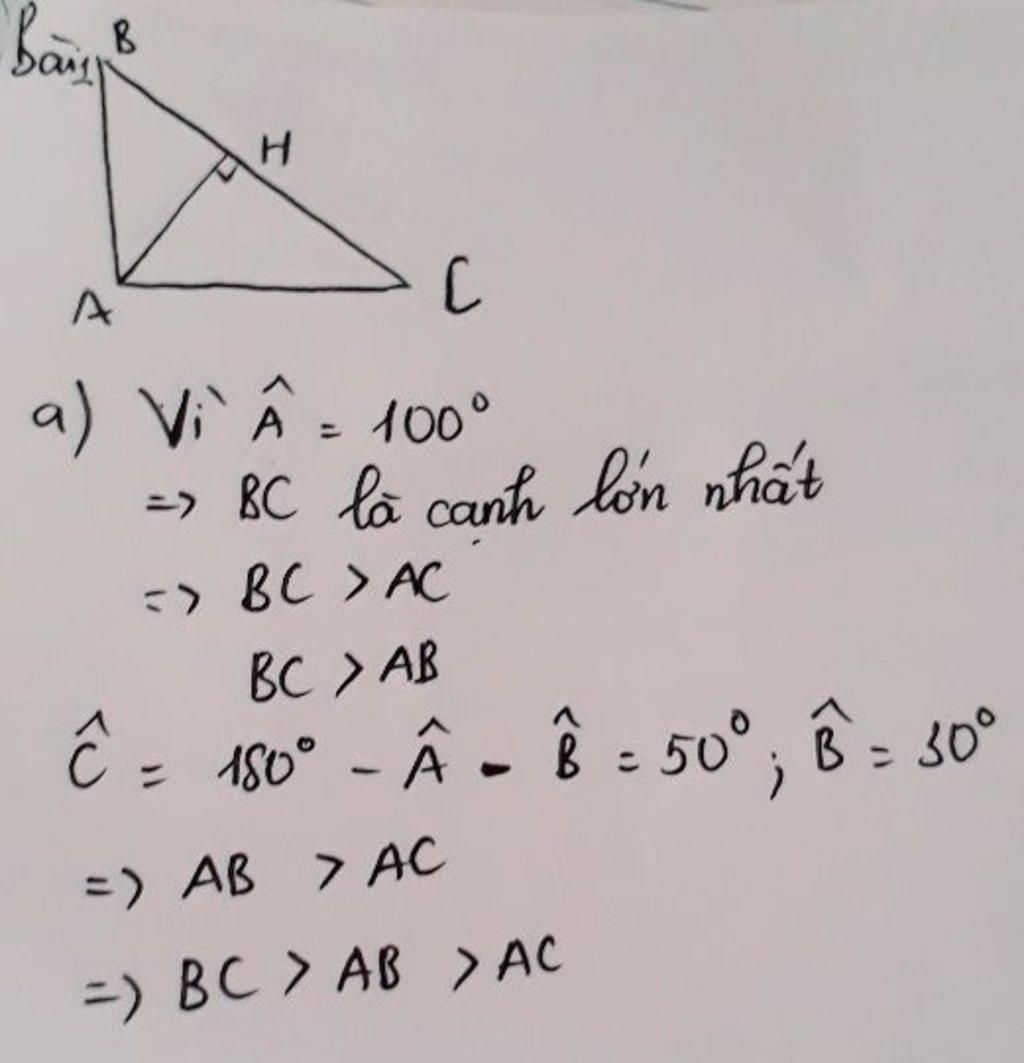 Bài 1
B
H
A
C
a) Vì Â = 100°
=> BC là cạnh lớn nhất
=> BC > AC
BC > AB
Ĉ = 180° - Â - B̂ = 50° ; B̂ = 30°
=> AB > AC
=> BC > AB > AC